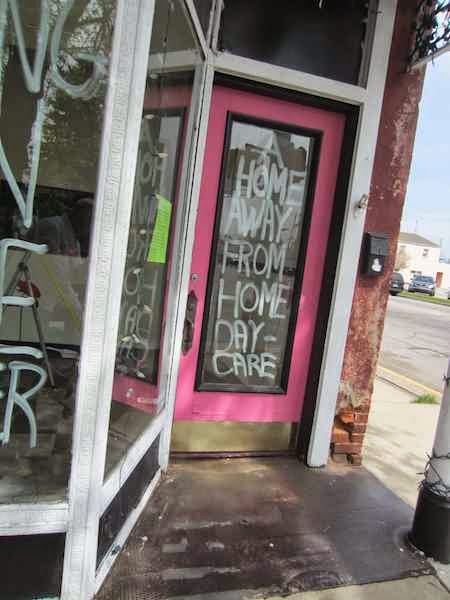 A
HOME
AWAY
FROM
HOME
DAY-
CARE